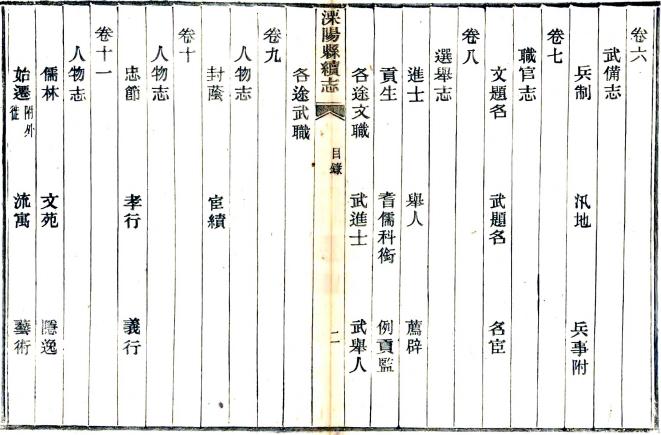 卷六
武備志
兵制 汛地 兵事附
卷七
職官志
文題名 武題名 名臣
卷八
選舉志
進士 舉人 薦辟
貢生 耆儒科銜 例貢監
各途文職 武進士 武舉人
溧陽縣續志 目錄 二
各途武職
卷九
人物志
封蔭 宦績
卷十
人物志
忠節 孝行 義行
卷十一
人物志
儒林 文苑 隱逸
始遷附外徙 流寓 藝術